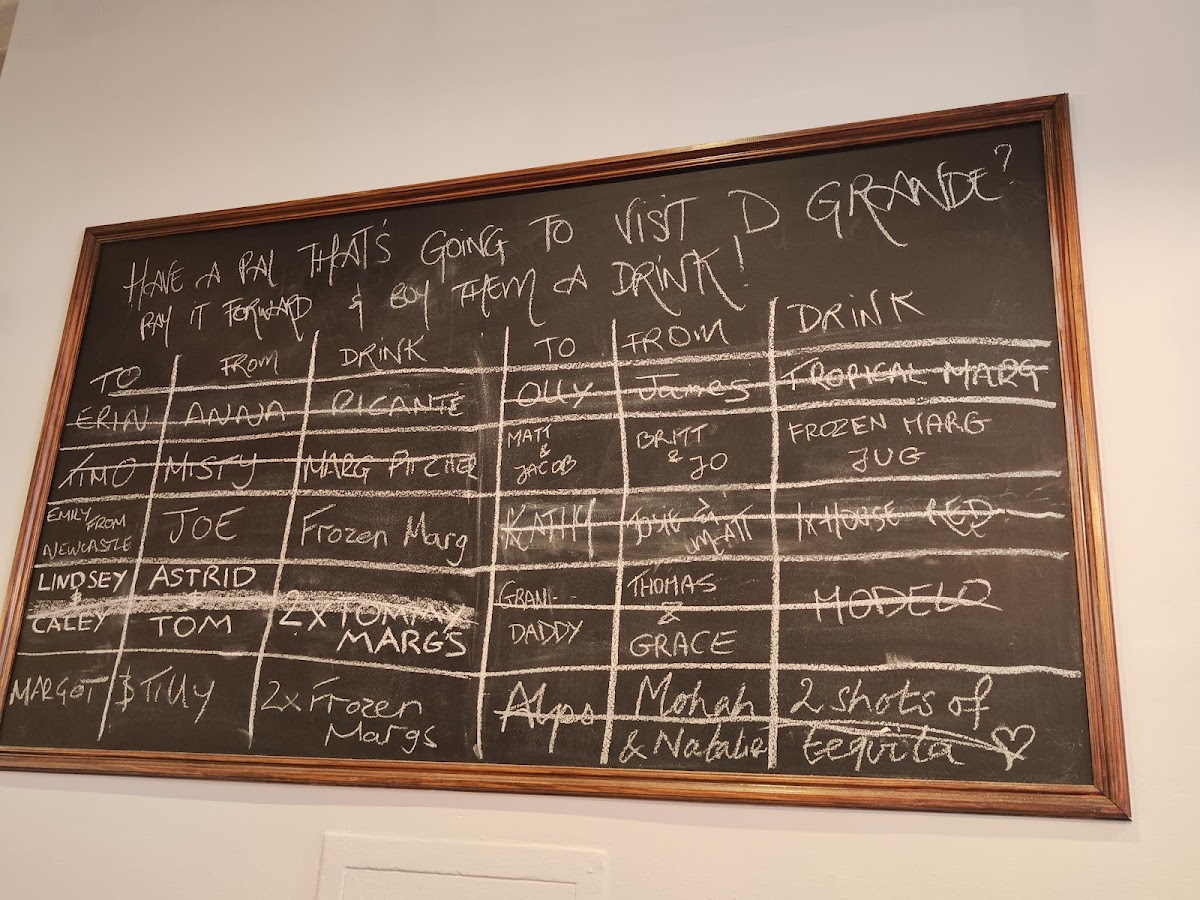 HAVE A PAL THAT'S GOING TO VISIT D GRANDE?
PAY IT FORWARD & BUY THEM A DRINK!
TO FROM DRINK
ERIN ANAJA PICANTE
TIMO MISTY MARG PITCHER
EMILY FROM
NEWCASTLE
JOE
Frozen Marg
LINDSEY
&
CALEY
ASTRID
+
TOM
2X TOMMY
MARGS
MARGOT $ Tilly
2x Frozen
Margs
TO FROM DRINK
OLLY James TROPICAL MARG
MATT
&
JACOB
BRITT
& JO
FROZEN MARG
JUG
KATHY
JOSIE &
MATT
1X HOUSE RED
GRANI-
DADDY
THOMAS
&
GRACE
MODELO
Alps
Mohan
& Natalie
2 shots of
tequila ♡